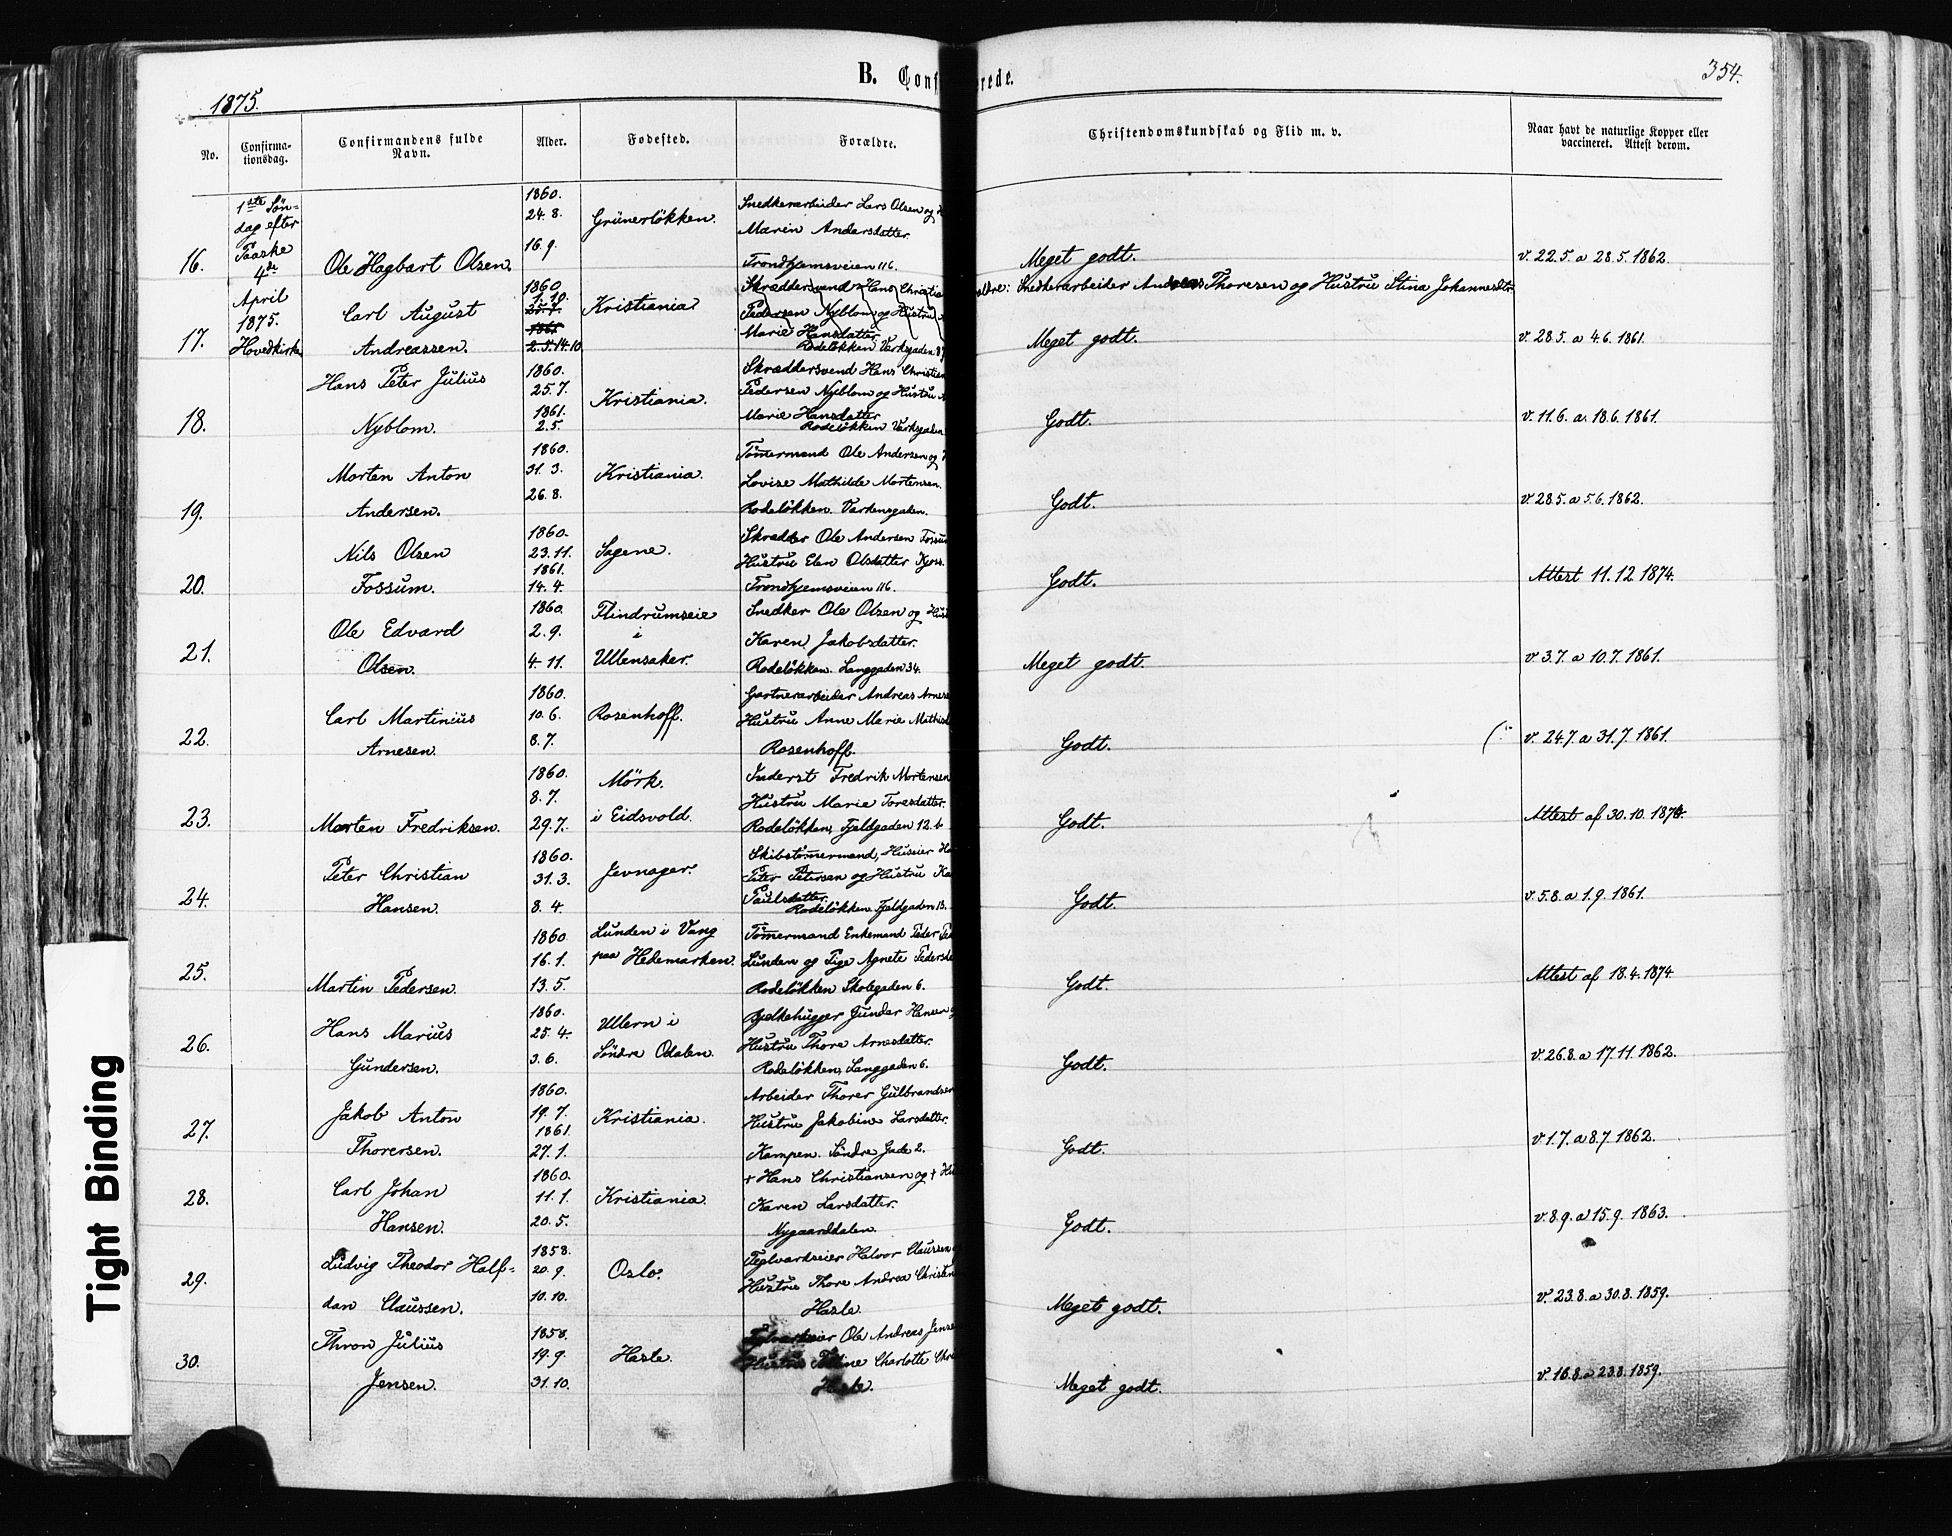 B. Conf
rede.
354.
1875.
No.
Confirma-
tionsdag.
Confirmandens fulde
Navn.
Alder.
Fødested.
Forældre.
Christendomskundskab og Flid m. v.
Naar havt de naturlige Kopper eller
vaccineret. Attest derom.
1ste Søn-
dag efter
Paaske
4de
April
1875.
Hovedkirke
16.
Ole Hagbart Olsen.
1860.
24. 8.
16. 9.
Grünerløkken.
Snedkerarbeider Lars Olsen og
Maren Andersdatter.
Trondhjemsveien 116.
Meget godt.
v. 22.5. a 28.5. 1862.
17.
Carl August
Andreassen.
1860.
1. 10.
25. 7.
1861
2. 5. 14. 10
Kristiania
Skræddersvend Hans Christian
Pedersen Nyblom og Hustru
Marie Hansdatter.
Rodeløkken Værksgaden
ldre: Snedkerarbeider Andreas Thoresen og Hustru Stina Johannesdtr
Meget godt.
v. 28.5. a 4.6. 1861.
18.
Hans Peter Julius
Nyblom.
1860.
25. 7.
1861.
2. 5.
Kristiania.
Skræddersvend Hans Christian
Pedersen Nyblom og Hustru
Marie Hansdatter
Rodeløkken Værksgaden
Godt.
v. 11.6. a. 18.6. 1861.
19.
Morten Anton
Andersen.
1860.
31. 3.
26. 8.
Kristiania.
Tømermand Ole Andersen og
Lovise Mathilde Mortensen.
Rodeløkken. Værkensgaden.
Godt.
v. 28.5. a 5.6. 1862.
20.
Nils Olsen
Fossum.
1860.
23. 11.
1861.
14. 4.
Sagene.
Skrædder Ole Andersen Fossum
Hustru Elen Olsdatter Kjos.
Trondhjemsveien 116.
Godt.
Attest 11. 12. 1874.
21.
Ole Edvard
Olsen.
1860.
2. 9.
4. 11.
Flindrumseie
i
Ullensaker.
Snedker Ole Olsen og Hus
Karen Jakobsdatter.
Rodeløkken. Langgaden 34.
Meget godt.
v. 3.7. a 10.7. 1861.
22.
Carl Martinius
Arnesen.
1860.
10. 6.
8. 7.
Rosenhoff.
Gartnerarbeider Andreas Arnese
Hustru Anne Marie Mathis
Rosenhoff.
Godt.
v. 24.7. a 31.7. 1861.
23.
Morten Fredriksen.
1860.
8. 7.
29. 7.
Mörk.
i Eidsvold.
Inderst Fredrik Mortensen
Hustru Marie Toresdatter.
Rodeløkken, Fjeldgaden 12. b
Godt.
Attest af 30. 10. 1874.
24.
Peter Christian
Hansen.
1860.
31. 3.
8. 4.
Jevnager.
Skibstømermand, Huseier Ha
Peter Petersen og Hustru Ka
Paulsdatter.
Rodeløkken. Fjeldgaden 13.
Godt.
v. 5.8. a 1.9. 1861.
25.
Martin Pedersen.
1860
16. 1.
13. 5.
Lunden i Vang
paa Hedemarken.
Tømermand Enkemand Peder
Lunden og Pige Agnete Pedersda
Rodeløkken Skolegaden 6.
Godt.
Attest af 18. 4. 1874
26.
Hans Marius
Gundersen.
1860.
25. 4.
3. 6.
Ullern i
Søndre Odalen.
Bjelkehugger Gunder Hansen
Hustru Thore Arnesdatter.
Rodeløkken, Langgaden 6.
Godt.
v. 26.8. a 17.11. 1862.
27.
Jakob Anton
Thorersen.
1860.
19. 7.
1861.
27. 1.
Kristiania.
Arbeider Thorer Gulbrandsen
Hustru Jakobine Larsdatter.
Kampen. Søndre Gade 2.
Godt.
v. 1.7. a 8.7. 1862.
28.
Carl Johan
Hansen.
1860.
11. 1.
20. 5.
Kristiania.
+ Hans Christiansen og + Hu
Karen Larsdatter.
Nygaarddalen.
Godt.
v. 8.9. a 15.9. 1863.
29.
Ludvig Theodor Half-
dan Claussen.
1858.
20. 9.
10. 10.
Oslo.
Teglværkseier Halvor Claussen
Hustru Thore Andrea Christen
Hasle
Meget godt.
v. 23.8. a 30.8. 1859.
30.
Thron Julius
Jensen.
1858.
19. 9.
31. 10.
Hasle.
Teglværkseier Ole Andreas Jense
Hustru Charlotte Chri
Hasle.
Meget godt.
v. 16.8. a 23.8. 1859.
Tight Binding